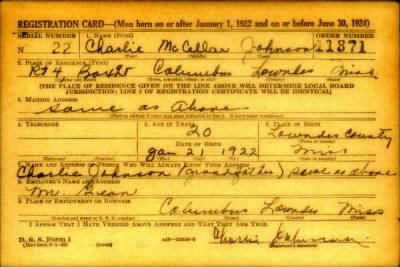 REGISTRATION CARD—(Men born on or after January 1, 1922 and on or before June 30, 1924)
SERIAL NUMBER 1. NAME (Print) ORDER NUMBER
N 22 Charlie McCullar Johnson 11871
2. PLACE OF RESIDENCE (Print)
Rt 4 Columbus Lowndes Miss
[THE PLACE OF RESIDENCE GIVEN ON THE LINE ABOVE WILL DETERMINE LOCAL BOARD
JURISDICTION; LINE 2 OF REGISTRATION CERTIFICATE WILL BE IDENTICAL]
3. MAILING ADDRESS
Same as Above
4. TELEPHONE 5. AGE IN YEARS 6. PLACE OF BIRTH
20 Lowndes County
DATE OF BIRTH
Jan 21 1922 Miss
7. NAME AND ADDRESS OF PERSON WHO WILL ALWAYS KNOW YOUR ADDRESS
Charlie Johnson (Grandfather) Same as above
8. EMPLOYER'S NAME AND ADDRESS
Mr.
9. PLACE OF EMPLOYMENT OR BUSINESS
Columbus Lowndes Miss
I AFFIRM THAT I HAVE VERIFIED ABOVE ANSWERS AND THAT THEY ARE TRUE.
D. S. S. Form 1
Charlie Johnson